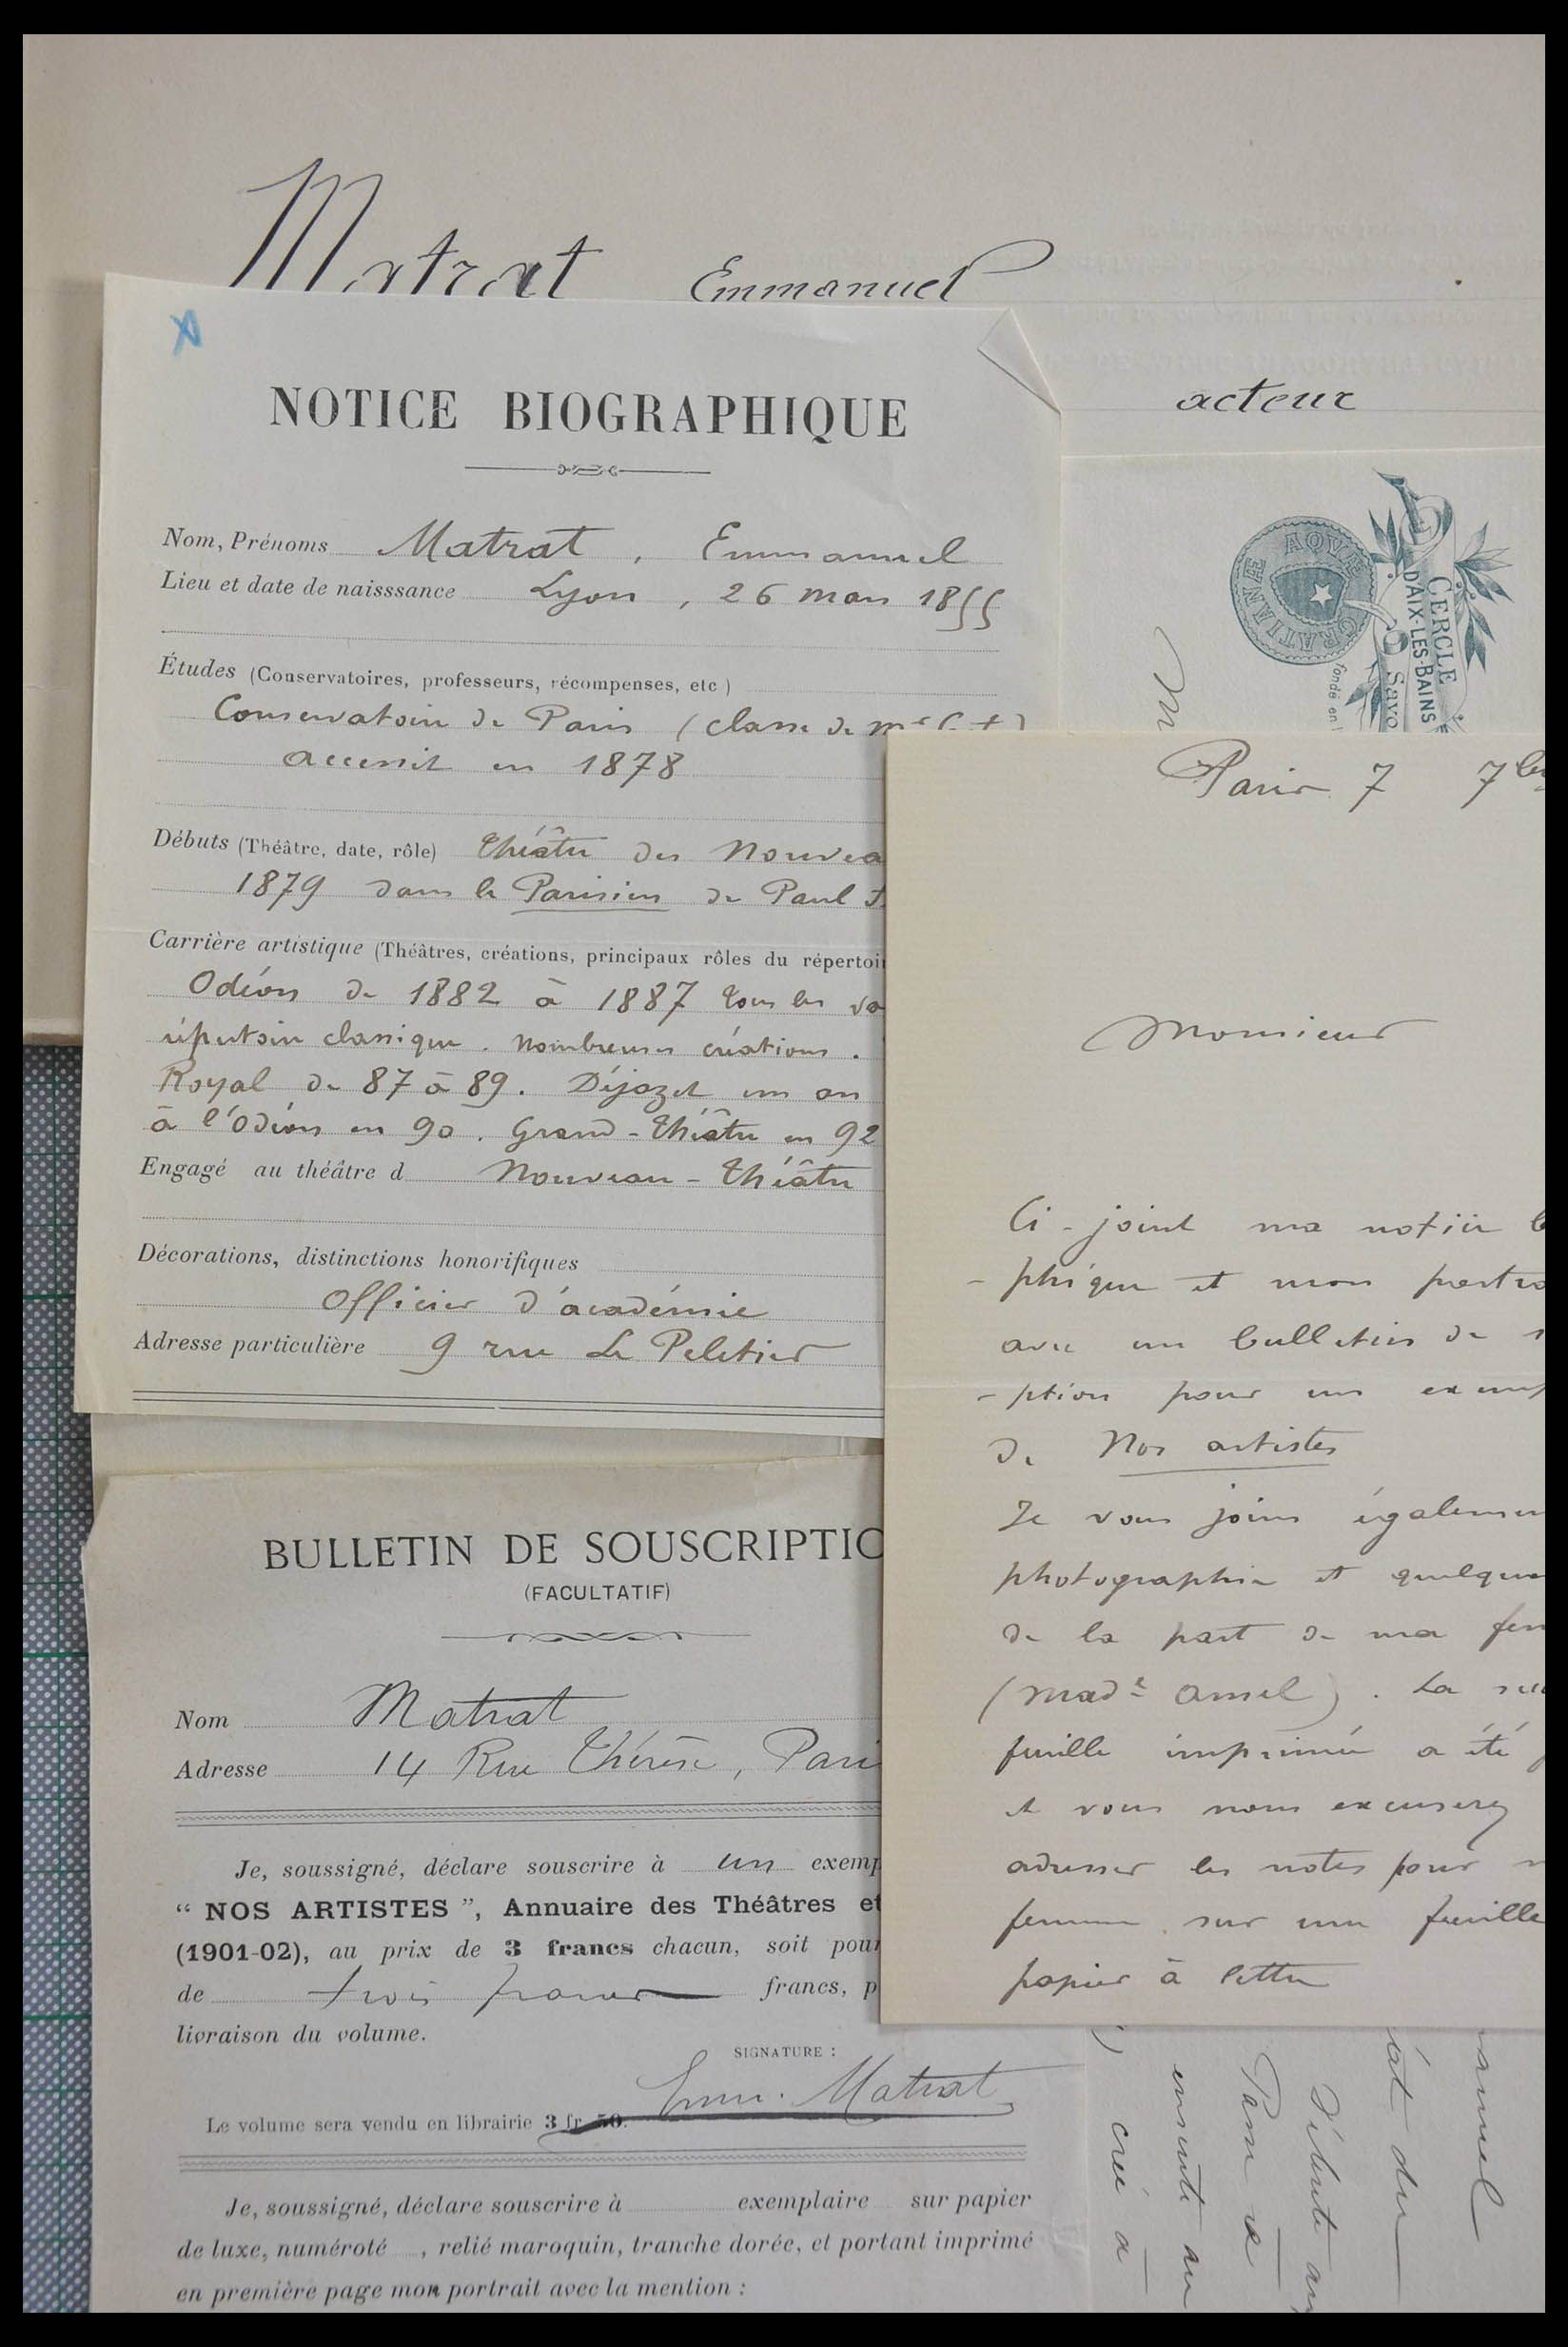 Matrat Emmanuel
acteur
NOTICE BIOGRAPHIQUE
Nom, Prénoms Matrat, Emmanuel
Lieu et date de naisssance Lyon, 26 mars 1855
Études (Conservatoires, professeurs, récompenses, etc)
Conservatoire de Paris (classe de
accessit en 1878
Débuts (Théâtre, date, rôle) Théâtre des Nouvea
1879 dans le Parisien de Paul
Carrière artistique (Théâtres, créations, principaux rôles du répertoi
Odéon de 1882 à 1887 tous les
répertoire classique. nombreuses créations.
Royal de 87 à 89. Déjazet un an
à l'Odéon en 90. Grand-Théâtre en 92
Engagé au théâtre d Nouveau-Théâtre
Décorations, distinctions honorifiques
Officier d'académie
Adresse particulière 9 rue Le Peletier
BULLETIN DE SOUSCRIPTIO
(FACULTATIF)
Nom Matrat
Adresse 14 Rue Thérèse, Pari
Je, soussigné, déclare souscrire à un exemp
“ NOS ARTISTES ”, Annuaire des Théâtres et
(1901-02), au prix de 3 francs chacun, soit pour
de trois francs francs, p
livraison du volume.
SIGNATURE :
Emm. Matrat
Le volume sera vendu en librairie 3 fr. 50.
Je, soussigné, déclare souscrire à exemplaire sur papier
de luxe, numéroté , relié maroquin, tranche dorée, et portant imprimé
en première page mon portrait avec la mention :
AQUÆ GRATIANÆ
CERCLE
D'AIX-LES-BAINS
Savo
fondé en
M
Paris 7 7bre
Monsieur
Ci-joint ma notice b
-phique et mon portra
avec un bulletin de s
-ption pour un exemp
de Nos artistes
Je vous joins égalemen
photographie et quelque
de la part de ma fem
(Made Amel). La
feuille imprimée a été
et vous nous excuserez
adresser les notes pour
femme sur une feuille
papier à lettre
anuel
at du
Débute au
Passe
ensuite au
créé à